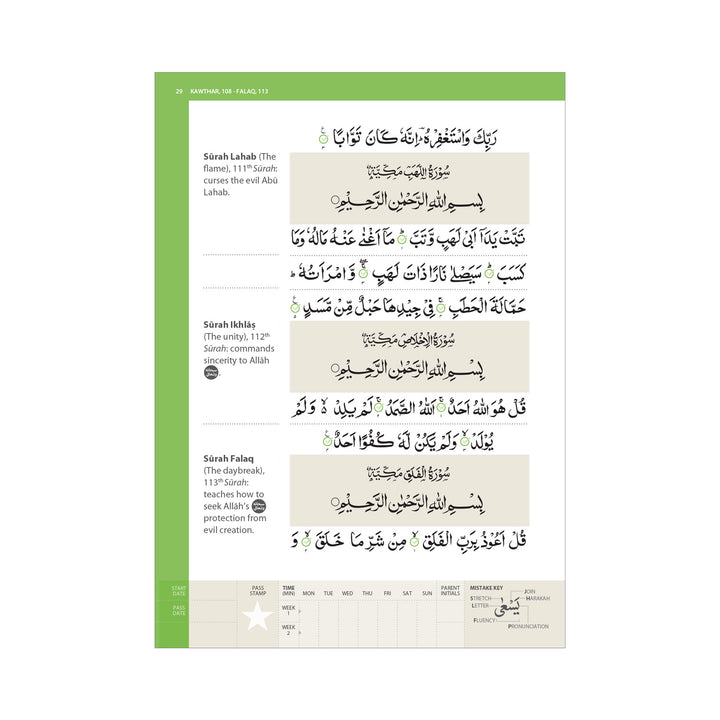 29 KAWTHAR, 108 - FALAQ, 113
رَبِّكَ وَاسْتَغْفِرْهُ ؕ اِنَّهٗ كَانَ تَوَّابًا
Sūrah Lahab (The
flame), 111th Sūrah:
curses the evil Abū
Lahab.
سُوْرَةُ اللَّهَبِ مَكِّيَّةٌ
بِسْمِ اللهِ الرَّحْمٰنِ الرَّحِيْمِ
تَبَّتْ يَدَآ اَبِيْ لَهَبٍ وَّتَبَّ مَآ اَغْنٰى عَنْهُ مَالُهٗ وَمَا
كَسَبَ سَيَصْلٰى نَارًا ذَاتَ لَهَبٍ وَّامْرَاَتُهٗ ؕ
حَمَّالَةَ الْحَطَبِ فِيْ جِيْدِهَا حَبْلٌ مِّنْ مَّسَدٍ
Sūrah Ikhlāṣ
(The unity), 112th
Sūrah: commands
sincerity to Allāh
سُوْرَةُ الْاِخْلَاصِ مَكِّيَّةٌ
بِسْمِ اللهِ الرَّحْمٰنِ الرَّحِيْمِ
قُلْ هُوَ اللهُ اَحَدٌ اَللهُ الصَّمَدُ لَمْ يَلِدْ ۙ وَلَمْ
يُوْلَدْ وَلَمْ يَكُنْ لَّهٗ كُفُوًا اَحَدٌ
Sūrah Falaq
(The daybreak),
113th Sūrah:
teaches how to
seek Allāh's
protection from
evil creation.
سُوْرَةُ الْفَلَقِ مَكِّيَّةٌ
بِسْمِ اللهِ الرَّحْمٰنِ الرَّحِيْمِ
قُلْ اَعُوْذُ بِرَبِّ الْفَلَقِ مِنْ شَرِّ مَا خَلَقَ وَ
START DATE
PASS DATE
PASS STAMP
TIME (MIN) MON TUE WED THU FRI SAT SUN PARENT INITIALS
WEEK 1
WEEK 2
MISTAKE KEY
STRETCH
LETTER
FLUENCY
يَسْعٰى
JOIN
HARAKAH
PRONUNCIATION